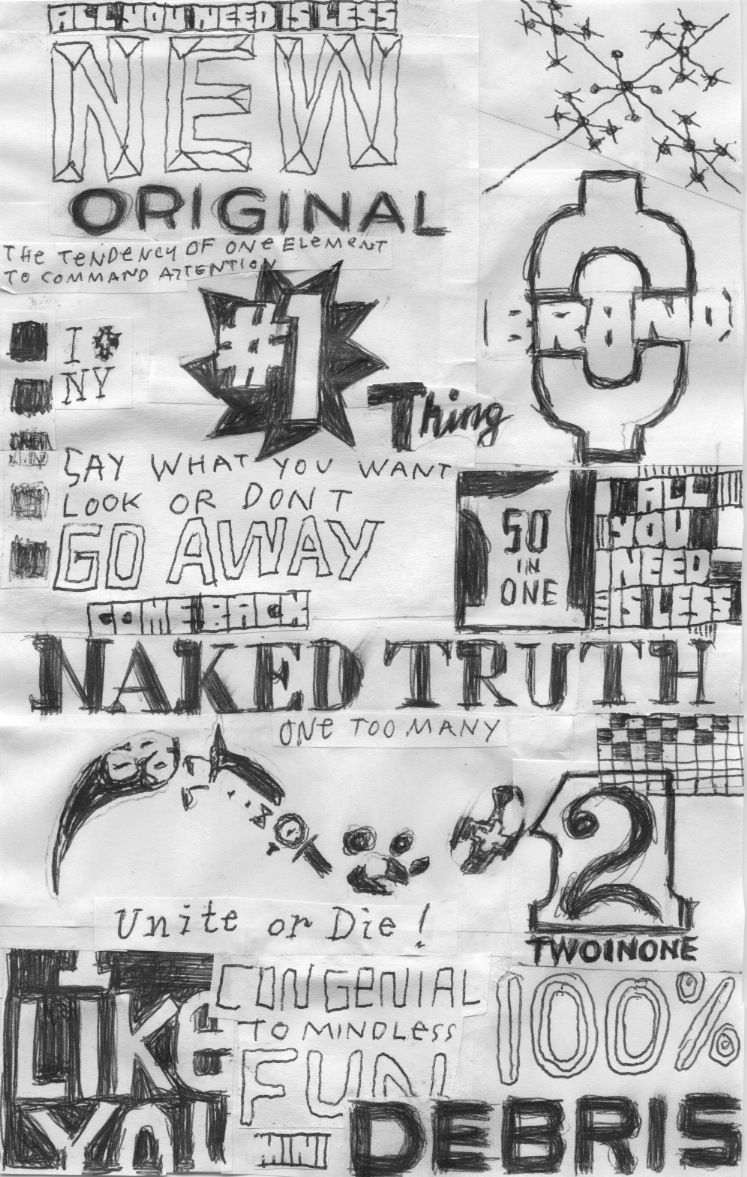 ALL YOU NEED IS LESS
NEW
ORIGINAL
THE TENDENCY OF ONE ELEMENT
TO COMMAND ATTENTION
#1
Thing
BRAND
I
NY
SAY WHAT YOU WANT
LOOK OR DONT
GO AWAY
COME BACK
50
IN
ONE
ALL
YOU
NEED
IS LESS
NAKED TRUTH
ONE TOO MANY
2
TWOINONE
Unite or Die!
LIKE
YOU
CONGENIAL
TO MINDLESS
FUN
100%
MINI
DEBRIS